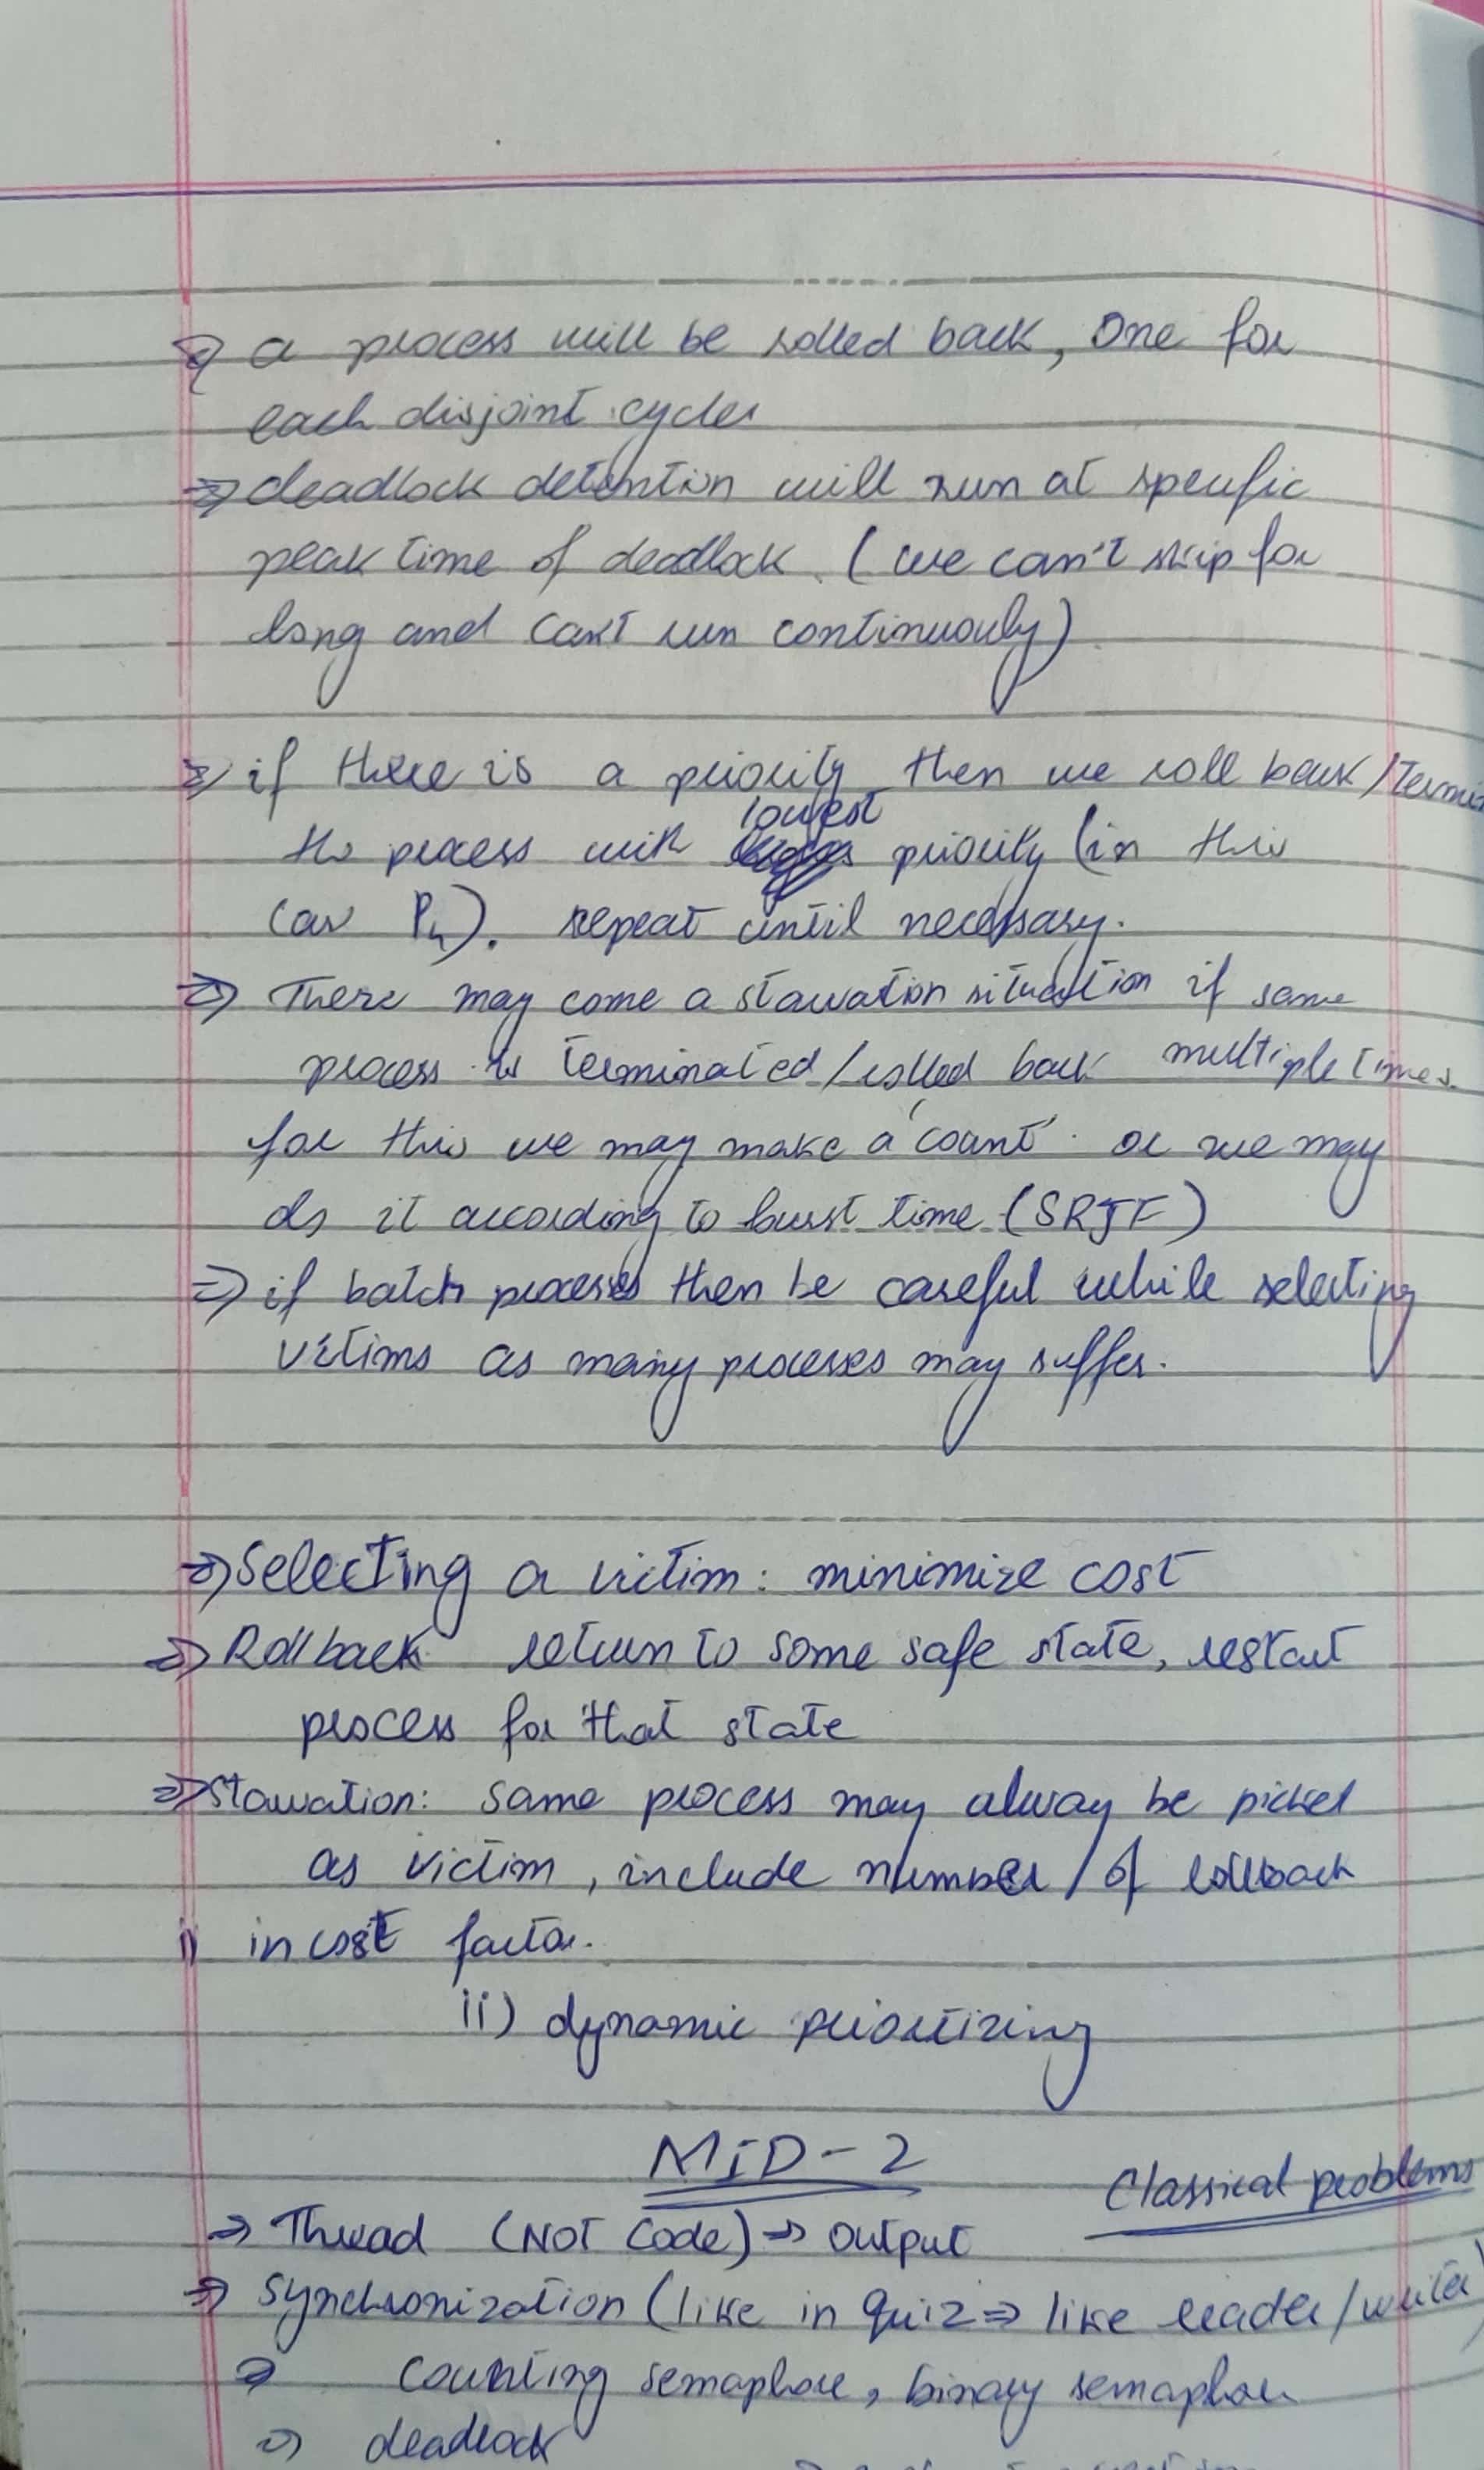 ⇒ a process will be rolled back, One for
each disjoint cycles
⇒ deadlock detention will run at specific
peak time of deadlock. (we can't skip for
long and can't run continuouly)
⇒ if there is a priority then we roll back/Termi
the process with lowest priority (in this
case P4). repeat until necessary.
⇒ There may come a starvation situation if same
process is terminated/rolled back multiple times.
for this we may make a 'count'. or we may
do it according to burst time (SRJF)
⇒ if batch processes then be careful while selecting
victims as many processes may suffer.
⇒ Selecting a victim: minimize cost
⇒ Rollback return to some safe state, restart
process for that state
⇒ starvation: same process may alway be picked
as victim, include number of rollback
i) in cost factor.
ii) dynamic prioritizing
MID-2
Classical problems
⇒ Thread (NOT Code) → output
⇒ Synchronization (like in Quiz ⇒ like reader/writer)
⇒ Counting semaphore, binary semaphore
⇒ deadlock